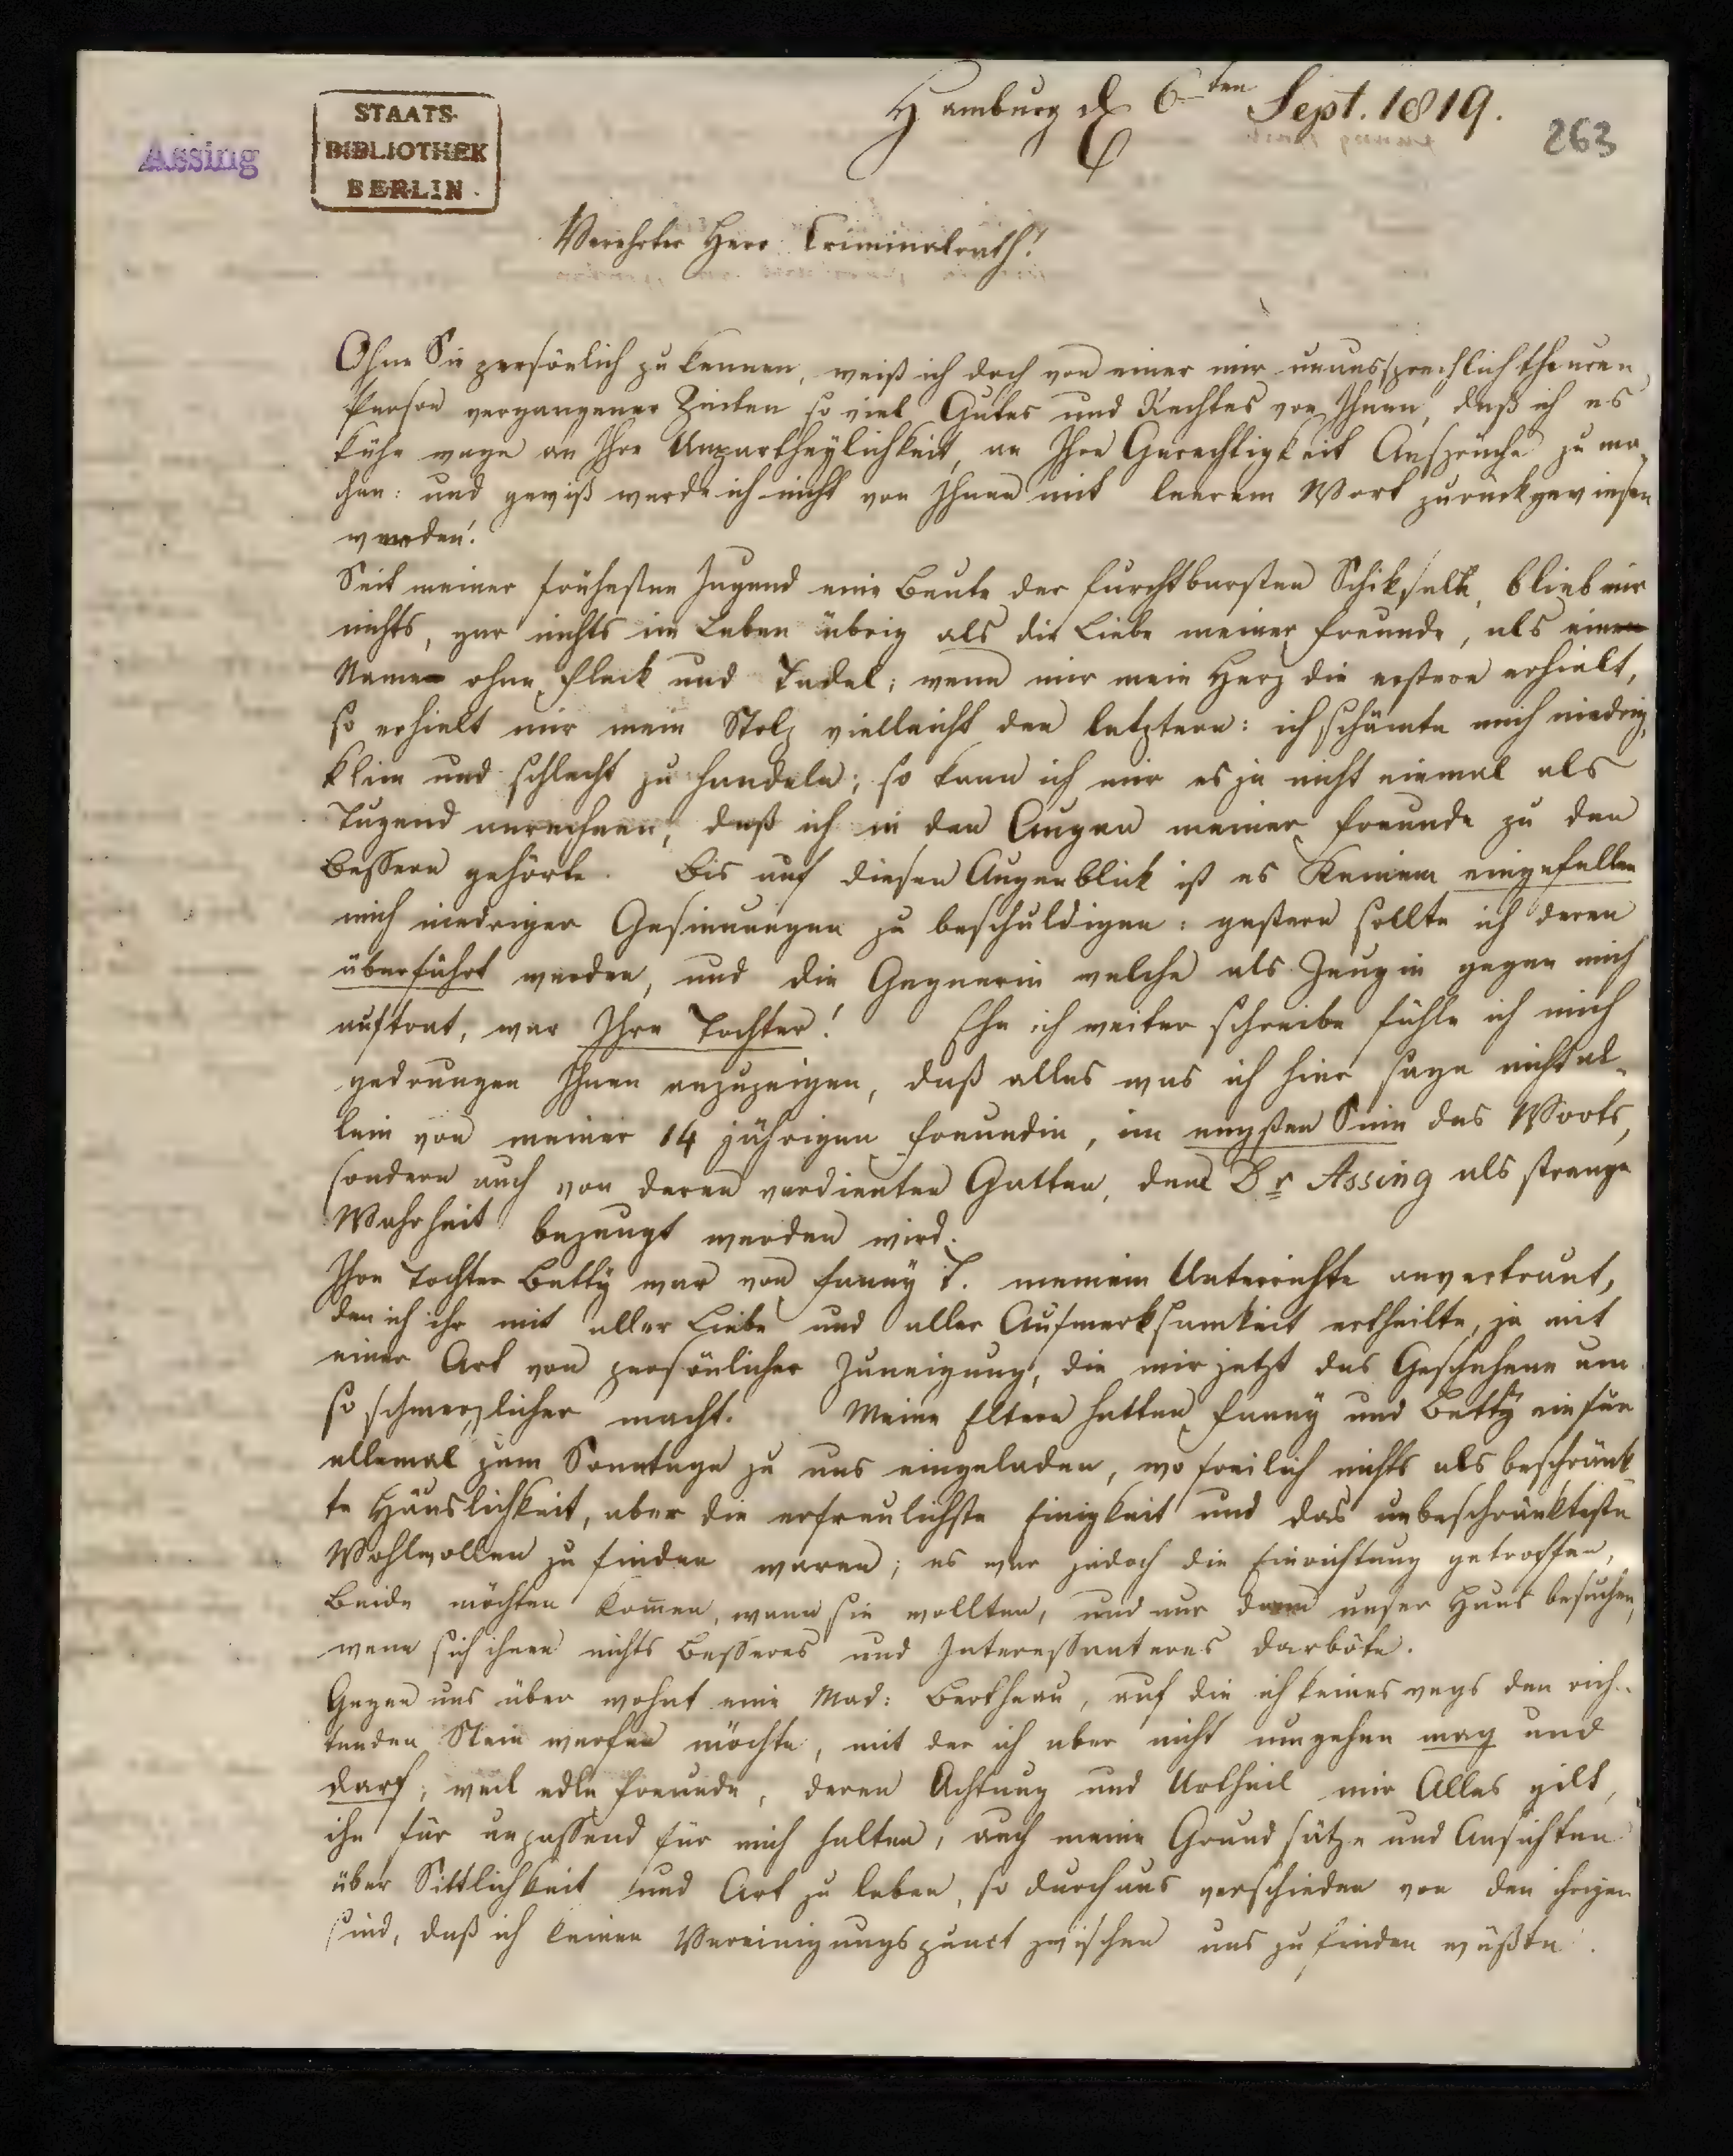 Hamburg d 6ten Sept. 1819.
263
Assing
STAATS-
BIBLIOTHEK
BERLIN.
Verehrter Herr Criminalrath!
Ohne Sie persönlich zu kennen, weiß ich doch von einer mir unaussprechlich theuren
Person vergangener Zeiten so viel Gutes und Rechtes von Ihnen, daß ich es
kühn wage an Ihre Unpartheylichkeit, an Ihre Gerechtigkeit Ansprüche zu ma-
chen: und gewiß werde ich nicht von Ihnen mit leerem Wort zurückgewiesen
werden!
Seit meiner frühesten Jugend eine Beute der furchtbarsten Schiksale, blieb mir
nichts, gar nichts im Leben übrig als die Liebe meiner Freunde, als
Name ohne Fleck und Tadel; wenn mir mein Herz die erstere erhielt,
so erhielt mir mein Stolz vielleicht den letztern: ich schämte mich niedrig,
klein und schlecht zu handeln; so kann ich mir es ja nicht einmal als
Tugend anrechnen, daß ich in den Augen meiner Freunde zu den
Bessern gehörte. Bis auf diesen Augenblick ist es Keinem eingefallen
mich niedriger Gesinnungen zu beschuldigen: gestern sollte ich deren
überführt werden, und die Gegnerin welche als Zeugin gegen mich
auftrat, war Ihre Tochter! Ehe ich weiter schreibe fühle ich mich
gedrungen Ihnen anzuzeigen, daß alles was ich hier sage nicht al-
lein von meiner 14 jährigen Freundin, im engsten Sinn des Worts,
sondern auch von deren verdienten Gatten, dem Dr Assing als strenge
Wahrheit bezeugt werden wird.
Ihre Tochter Betty war von Fanny T. meinem Unterrichte anvertraut,
den ich ihr mit aller Liebe und aller Aufmerksamkeit ertheilte, ja mit
einer Art von persönlicher Zuneigung, die mir jetzt das Geschehene um
so schmerzlicher macht. Meine Eltern hatten Fanny und Betty ein für
allemal zum Sonntage zu uns eingeladen, wo freilich nichts als beschränk-
te Häuslichkeit, aber die erfreulichste Einigkeit und das unbeschränkteste
Wohlwollen zu finden waren; es war jedoch die Einrichtung getroffen,
Beide möchten komen, wann sie wollten, und nur dann unser Haus besuchen,
wenn sich ihnen nichts Besseres und Interessanteres darböte.
Gegen uns über wohnt eine Mad: Bertheau, auf die ich keineswegs den rich-
tenden Stein werfen möchte, mit der ich aber nicht umgehen mag und
darf; weil edle Freunde, deren Achtung und Urtheil mir Alles gilt,
ihn für unpassend für mich halten, auch meine Grundsätze und Ansichten
über Sittlichkeit und Art zu leben, so durchaus verschieden von den ihrigen
sind, daß ich keinen Vereinigungspunct zwischen uns zu finden wüßte.